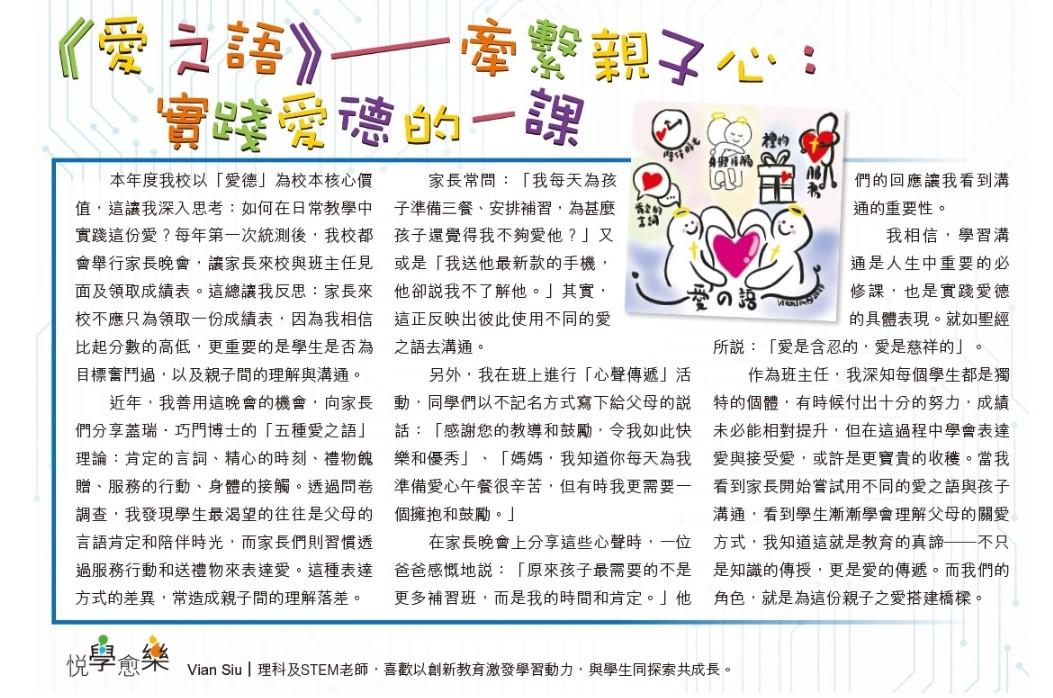 《愛之語》——牽繫親子心：
實踐愛德的一課
本年度我校以「愛德」為校本核心價
值，這讓我深入思考：如何在日常教學中
實踐這份愛？每年第一次統測後，我校都
會舉行家長晚會，讓家長來校與班主任見
面及領取成績表。這總讓我反思：家長來
校不應只為領取一份成績表，因為我相信
比起分數的高低，更重要的是學生是否為
目標奮鬥過，以及親子間的理解與溝通。
近年，我善用這晚會的機會，向家長
們分享蓋瑞．巧門博士的「五種愛之語」
理論：肯定的言詞、精心的時刻、禮物餽
贈、服務的行動、身體的接觸。透過問卷
調查，我發現學生最渴望的往往是父母的
言語肯定和陪伴時光，而家長們則習慣透
過服務行動和送禮物來表達愛。這種表達
方式的差異，常造成親子間的理解落差。
家長常問：「我每天為孩
子準備三餐、安排補習，為甚麼
孩子還覺得我不夠愛他？」又
或是「我送他最新款的手機，
他卻說我不了解他。」其實，
這正反映出彼此使用不同的愛
之語去溝通。
另外，我在班上進行「心聲傳遞」活
動，同學們以不記名方式寫下給父母的說
話：「感謝您的教導和鼓勵，令我如此快
樂和優秀」、「媽媽，我知道你每天為我
準備愛心午餐很辛苦，但有時我更需要一
個擁抱和鼓勵。」
在家長晚會上分享這些心聲時，一位
爸爸感慨地說：「原來孩子最需要的不是
更多補習班，而是我的時間和肯定。」他
身體接觸
禮物
服務
肯定的
言詞
愛の語
們的回應讓我看到溝
通的重要性。
我相信，學習溝
通是人生中重要的必
修課，也是實踐愛德
的具體表現。就如聖經
所說：「愛是含忍的，愛是慈祥的」。
作為班主任，我深知每個學生都是獨
特的個體，有時候付出十分的努力，成績
未必能相對提升，但在這過程中學會表達
愛與接受愛，或許是更寶貴的收穫。當我
看到家長開始嘗試用不同的愛之語與孩子
溝通，看到學生漸漸學會理解父母的關愛
方式，我知道這就是教育的真諦——不只
是知識的傳授，更是愛的傳遞。而我們的
角色，就是為這份親子之愛搭建橋樑。
悅學愈樂
Vian Siu｜理科及STEM老師，喜歡以創新教育激發學習動力，與學生同探索共成長。